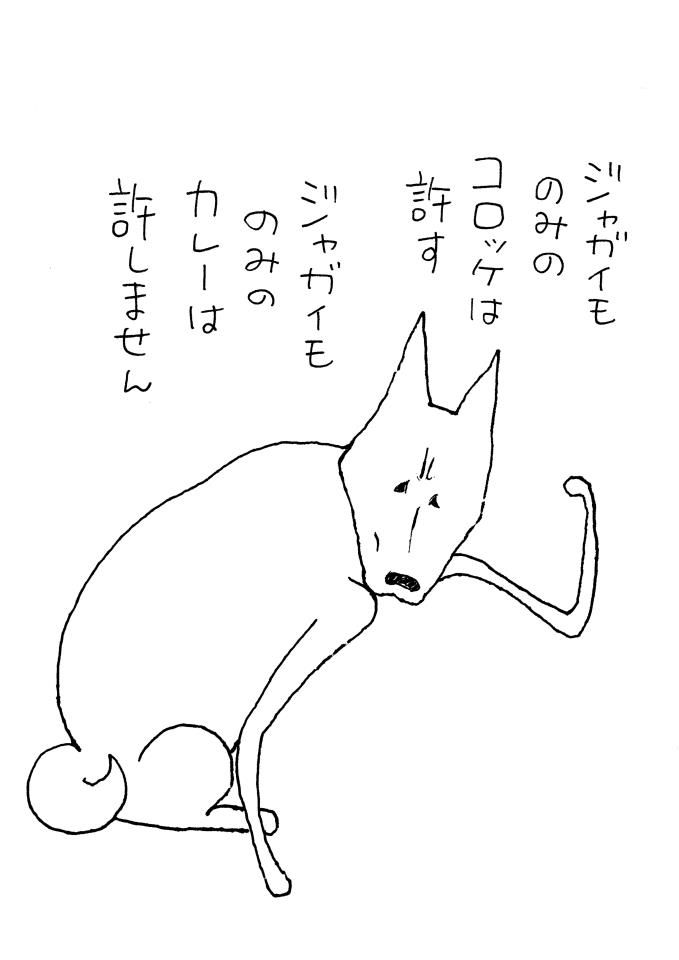 ジャガイモ
のみの
コロッケは
許す
ジャガイモ
のみの
カレーは
許しません